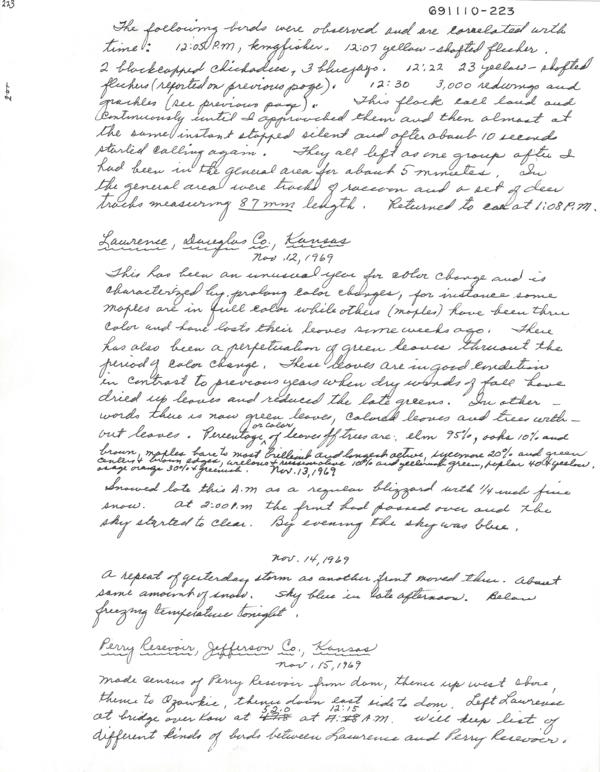 223
691110-223
The following birds were observed and are correlated with
time: 12:05 P.M, kingfisher. 12:07 yellow-shafted flicker.
2 blackcapped chickadees, 3 bluejays. 12:22 23 yellow-shafted
flickers (reported on previous page). 12:30 3,000 redwings and
grackles (see previous page). This flock call loud and
continuously until I approached them and then almost at
the same instant stopped silent and after about 10 seconds
started calling again. They all left as one group after I
had been in the general area for about 5 minutes. In
the general area were tracks of raccoon and a set of deer
tracks measuring 87 mm length. Returned to car at 1:08 P.M.
Lawrence, Douglas Co., Kansas
Nov. 12, 1969
This has been an unusual year for color change and is
characterized by prolong color changes, for instance some
maples are in full color while others (maples) have been thru
color and have losts their leaves some weeks ago. There
has also been a perpetuation of green leaves thruout the
period of color change. These leaves are in good condition
in contrast to previous years when dry winds of fall have
dried up leaves and reduced the late greens. In other-
words there is now green leaves, colored leaves and trees with-
out leaves. Percentage of leaves off trees are: elm 95%, oaks 10% and
or color
brown, maples bare to most brilliant and longest active, sycamore 20% and green
centers & brown edges, 10% and yellowish green, poplar 40% yellow,
osage orange 30% & greenish. Nov. 13, 1969
Snowed late this A.M as a regular blizzard with 1/4 inch fine
snow. At 2:00 P.m the front had passed over and the
sky started to clear. By evening the sky was blue.
Nov. 14, 1969
A repeat of yesterday storm as another front moved thru. About
same amount of snow. Sky blue in late afternoon. Below
freezing temperature tonight.
Perry Resevoir, Jefferson Co., Kansas
Nov. 15, 1969
Made census of Perry Resevoir from dam, thence up west shore,
thence to Ozawkie, thence down east side to dam. Left Lawrence
520 12:15
at bridge over Kaw at at A.M. Will keep list of
different kinds of birds between Lawrence and Perry Resevoir.